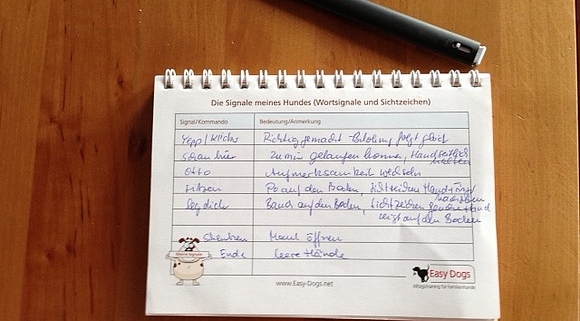 Die Signale meines Hundes (Wortsignale und Sichtzeichen)
Signal/Kommando Bedeutung/Anmerkung
Yepp/Klicker Richtig gemacht - Belohnung folgt gleich
Schau hier Zu mir gelaufen kommen, Hand seitlich halten
Otto Aufmerksamkeit wechseln
sitzen Po auf den Boden, Sichtzeichen Hand
leg dich Bauch auf den Boden, Sichtzeichen Hand
zeigt auf den Boden
Schenken Maul öffnen
Ende leere Hände
Meine Signale
www.Easy-Dogs.net
Easy Dogs
Alltagstraining für Familienhunde